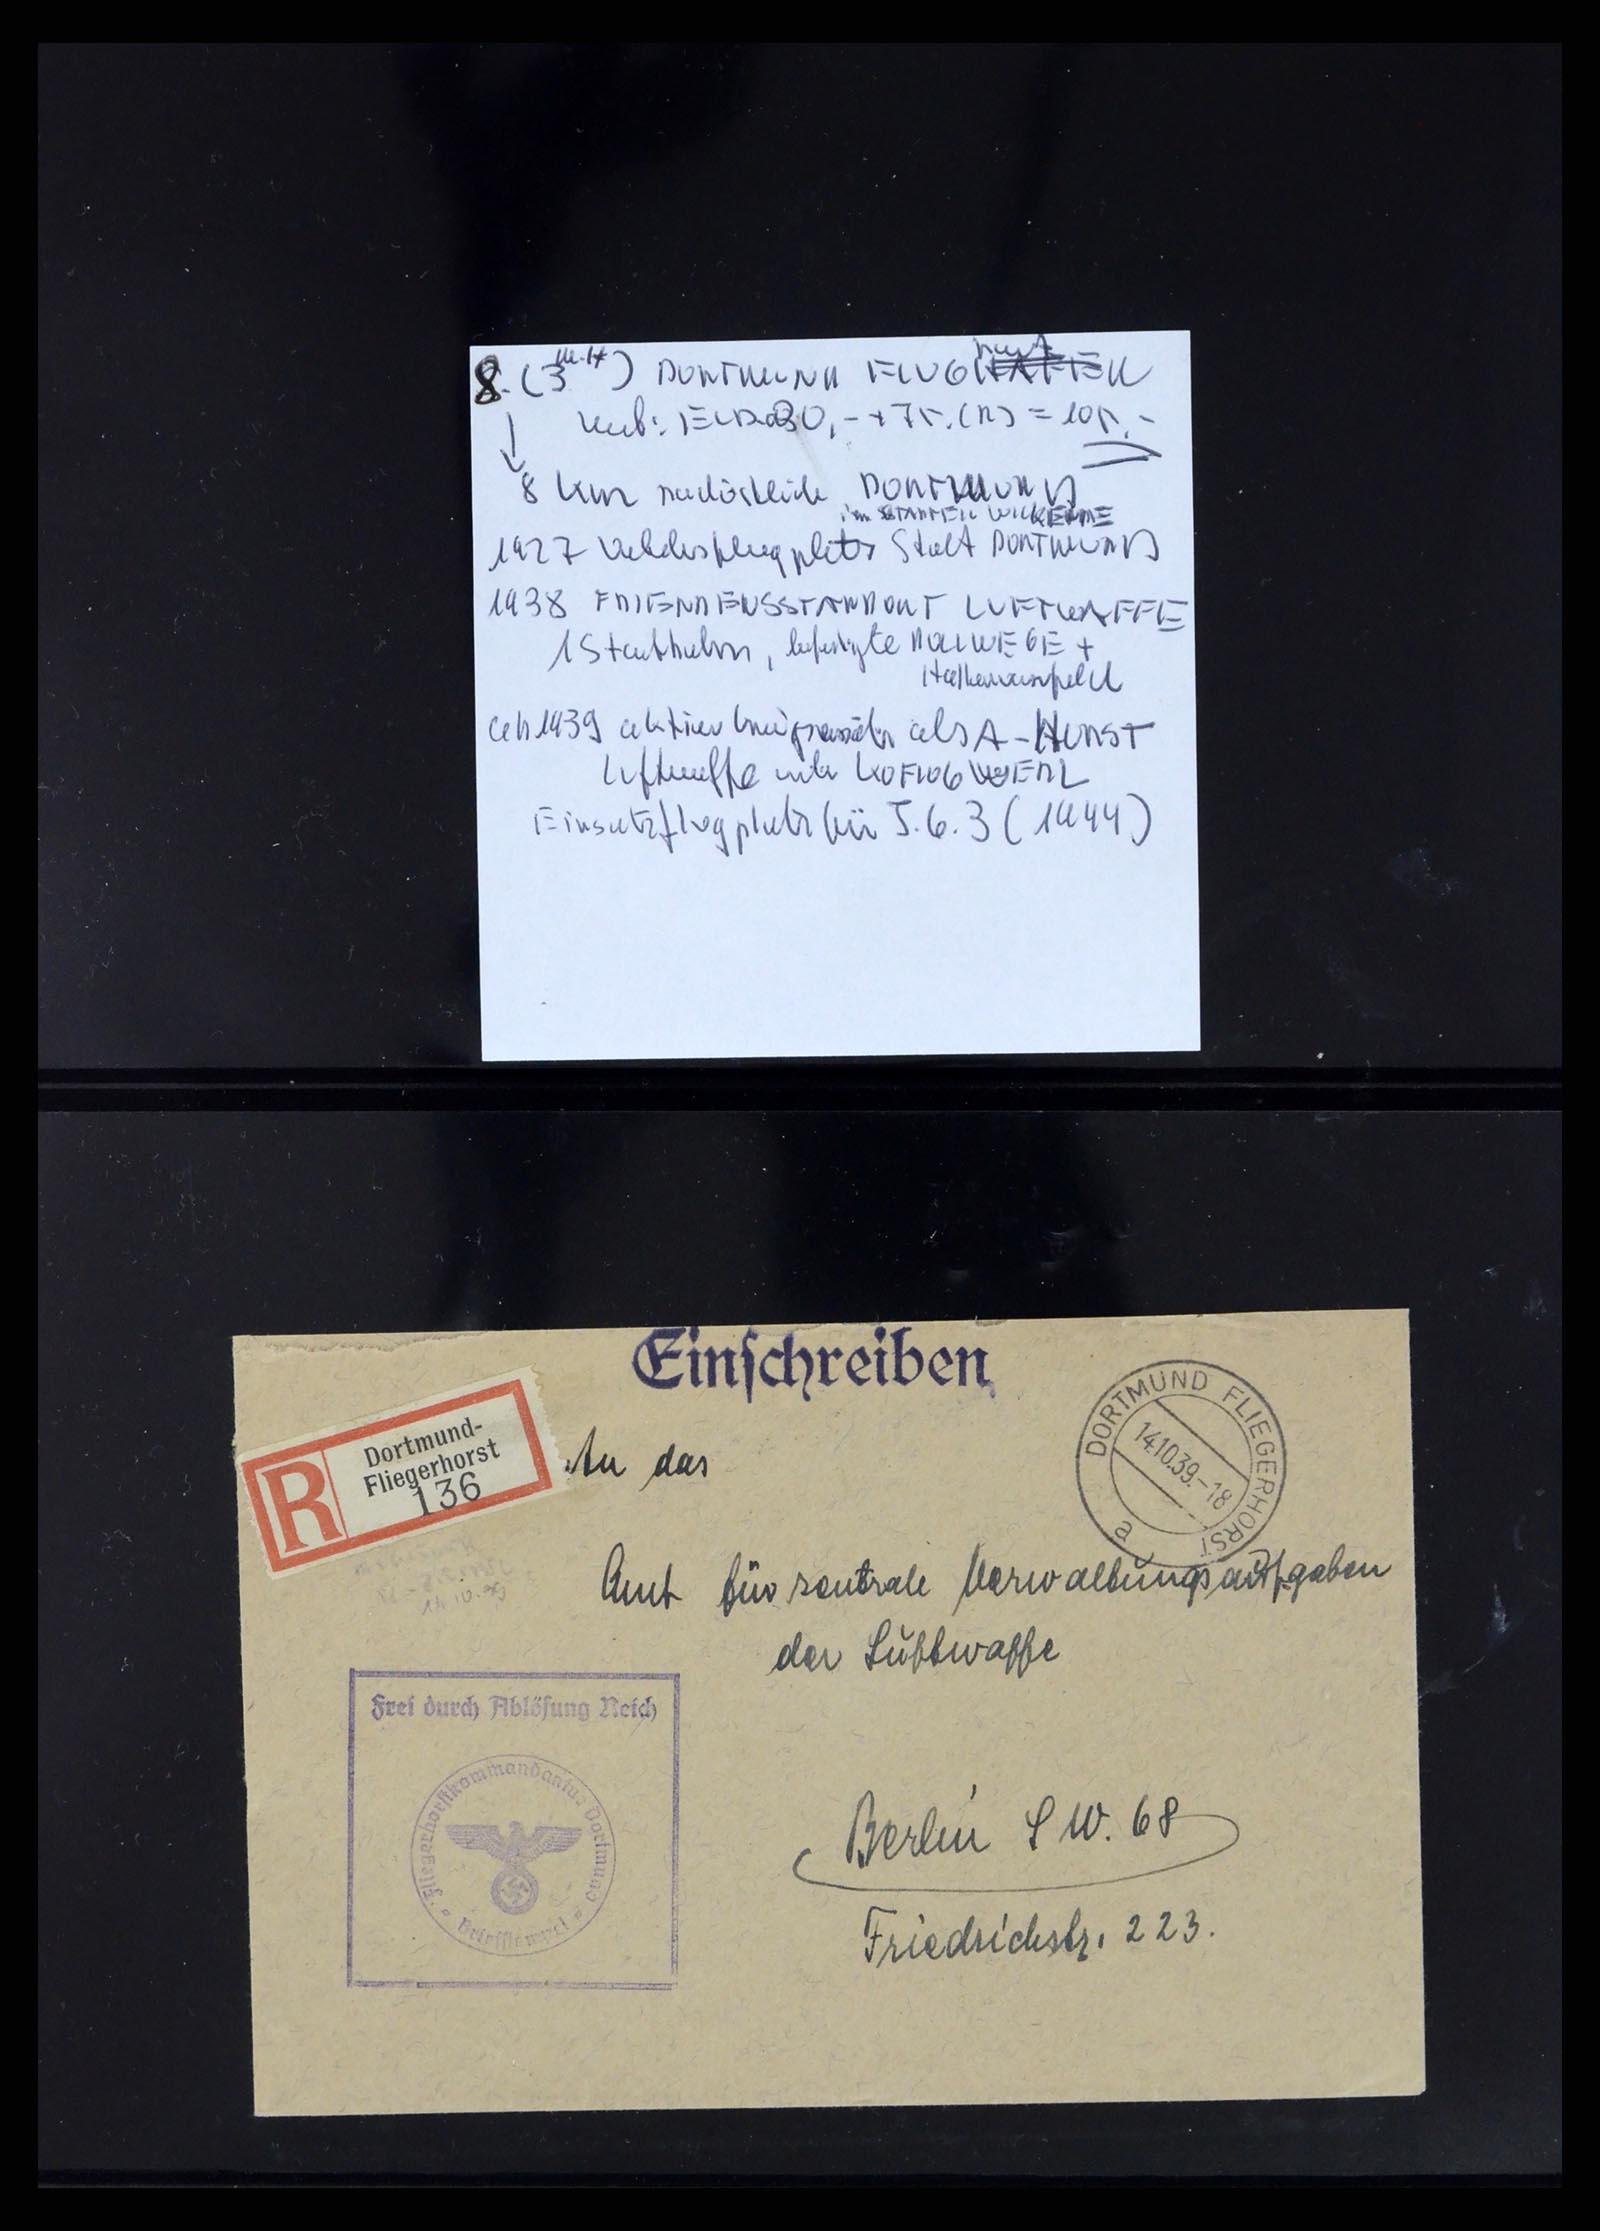 8. (3
DORTMUND FLUG
8 km nordöstlich DORTMUND
im STADTTEIL WICKEDE
1927 Verkehrsflugplatz Stadt DORTMUND
1938 FRIEDENSSTANDORT LUFTWAFFE
1 Startbahn, befestigte ROLLWEGE +
Hallenvorfeld
ab 1939 aktiver als A-HORST
Luftwaffe unter KOFLUG WERL
Einsatzflugplatz für J.G.3 (1944)
Einschreiben
R
Dortmund-
Fliegerhorst
136
DORTMUND FLIEGERHORST
14.10.39.-18
a
An das
Amt für zentrale Verwaltungsaufgaben
der Luftwaffe
Frei durch Ablösung Reich
Fliegerhorstkommandantur Dortmund
Briefstempel
Berlin S W. 68
Friedrichstr. 223.